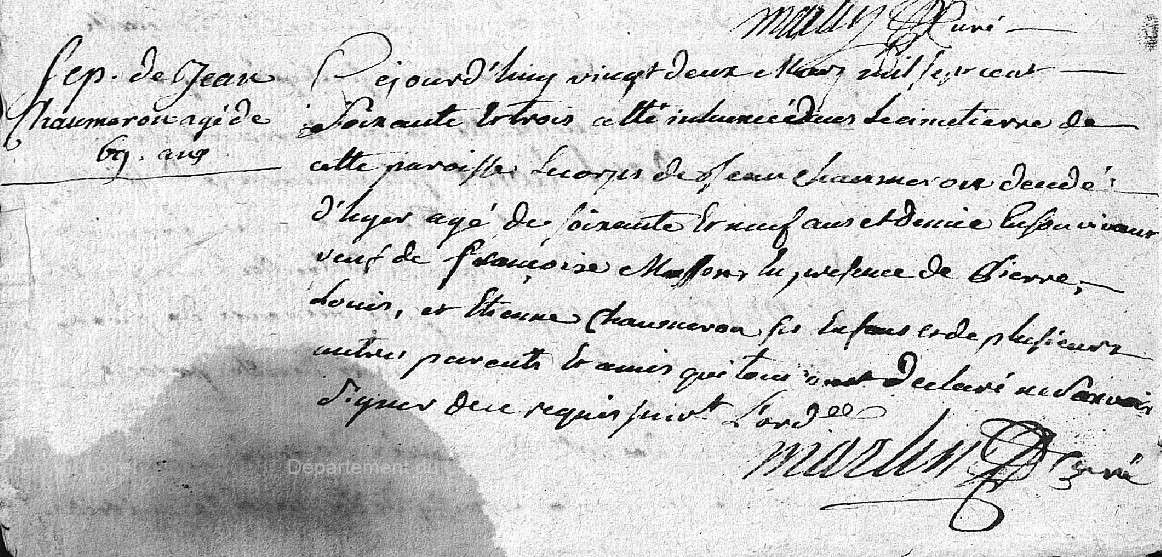 martin Curé
Sep. de Jean
Chaumeron agé de
69. ans
Cejourd'huy vingt deux Mars mil sept cent
soixante et trois a été inhumé dans le cimetierre de
cette paroisse le corps de Jean Chaumeron decedé
d'hyer agé de soixante et neuf ans et demie en son vivant
veuf de françoise Masson, en presence de Pierre,
Louis, et Etienne Chaumeron ses Enfans et de plusieurs
autres parents et amis qui tous ont declaré ne sçavoir
signer de ce requis suivt L'ordee
martin Curé
Departement du